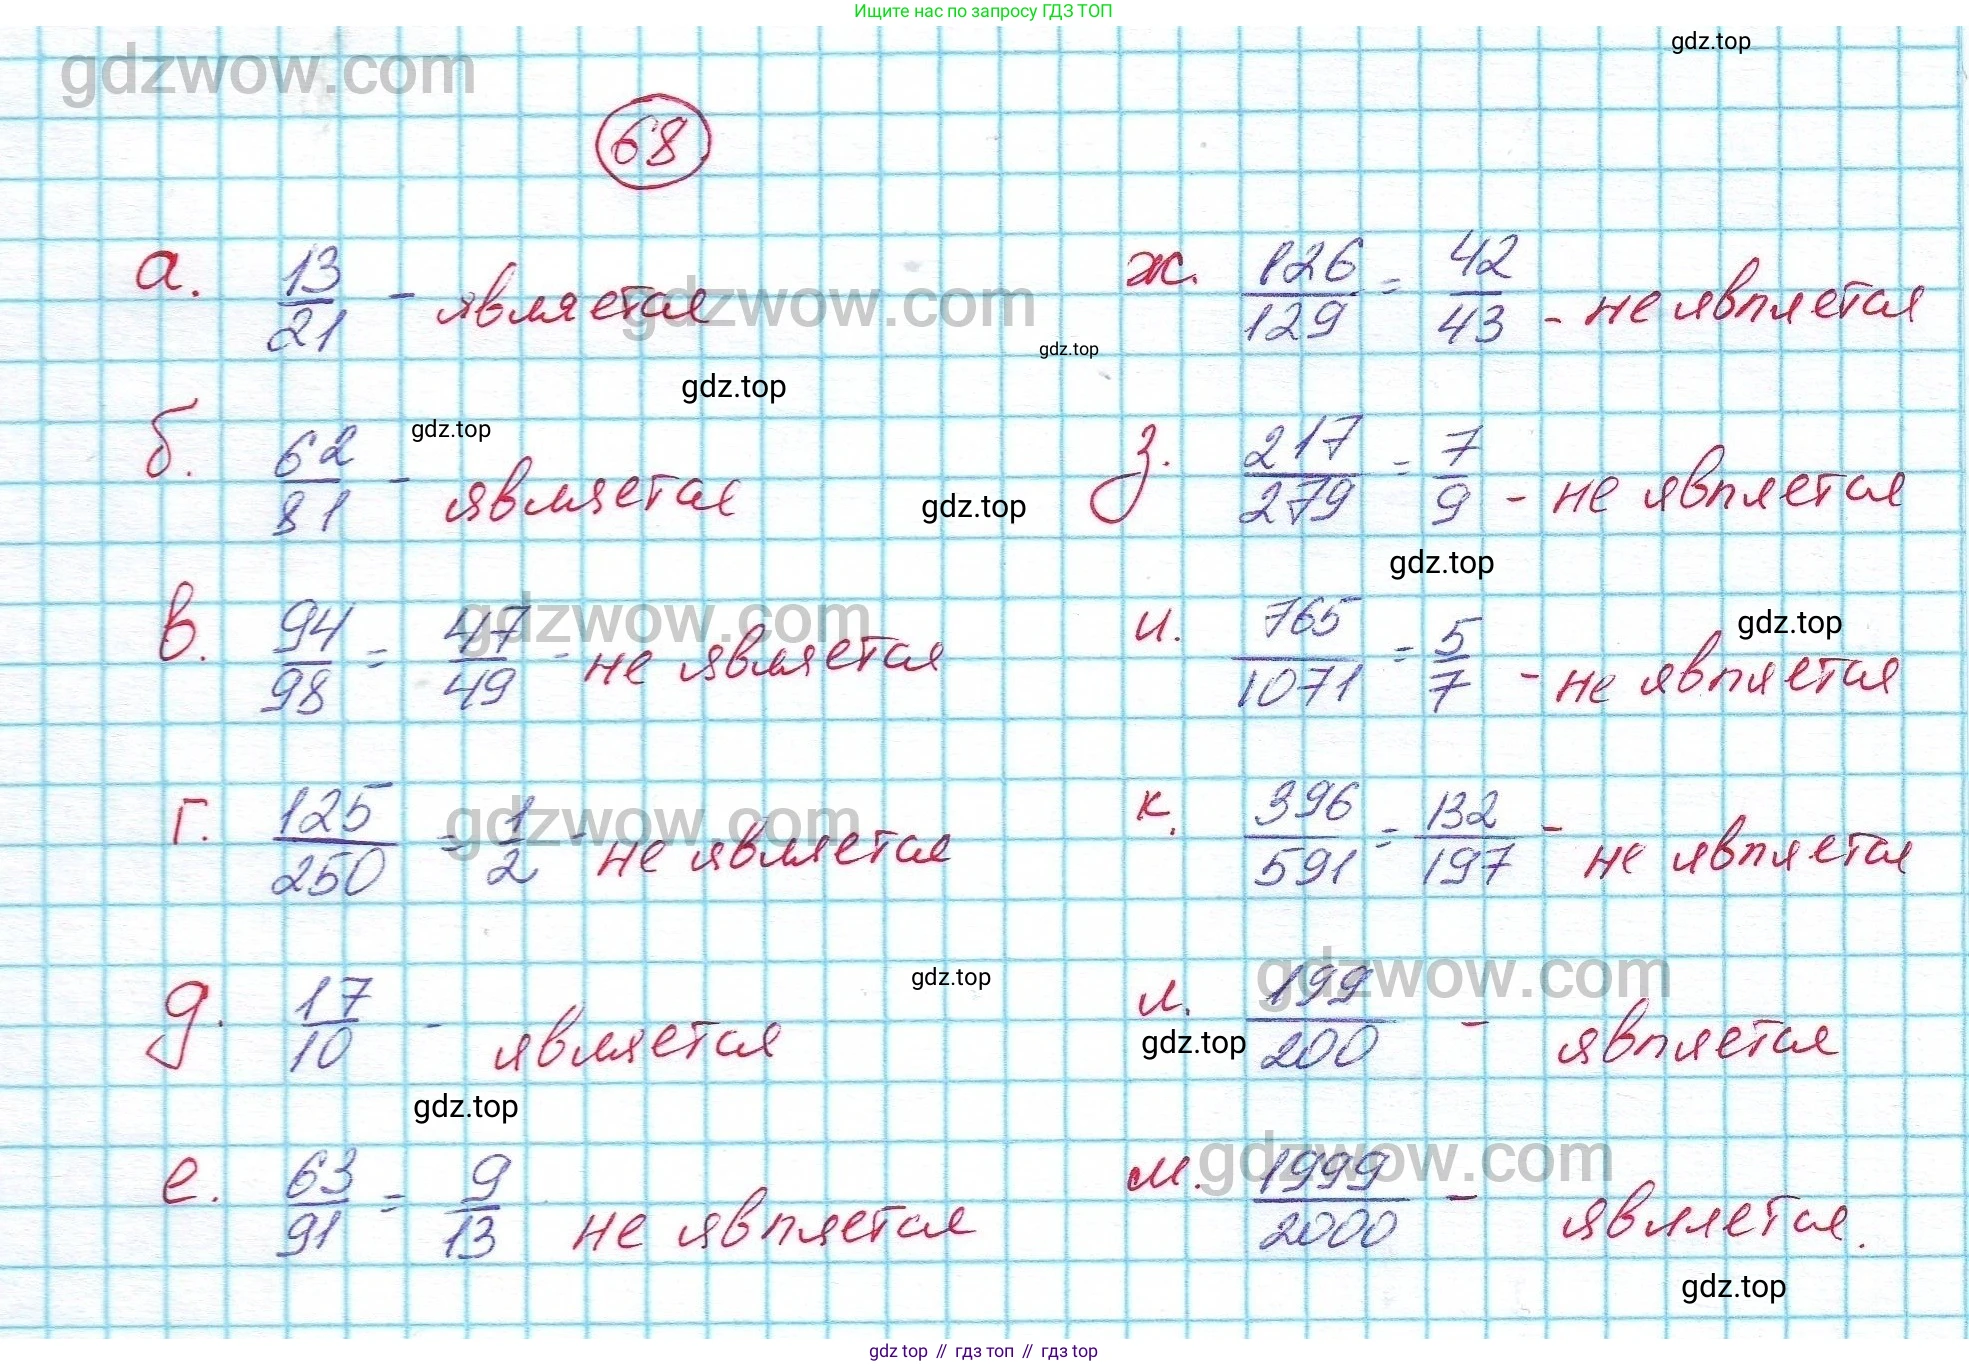 Ищите нас по запросу ГДЗ ТОП
gdzwow.com
gdz.top
68
а. 13/21 - является
gdzwow.com
gdz.top
gdz.top
б. 62/81 - является
gdz.top
gdz.top
в. 94/98 = 47/49 - не является
gdzwow.com
г. 125/250 = 1/2 - не является
gdzwow.com
д. 17/10 - является
gdz.top
gdz.top
е. 63/91 = 9/13 не является
ж. 126/129 = 42/43 - не является
з. 217/279 = 7/9 - не является
gdz.top
и. 765/1071 = 5/7 - не является
gdz.top
к. 396/591 = 132/197 - не является
л. 199/200 - является
gdzwow.com
gdz.top
м. 1999/2000 - является.
gdzwow.com
gdz.top
gdz top // гдз топ // гдз top